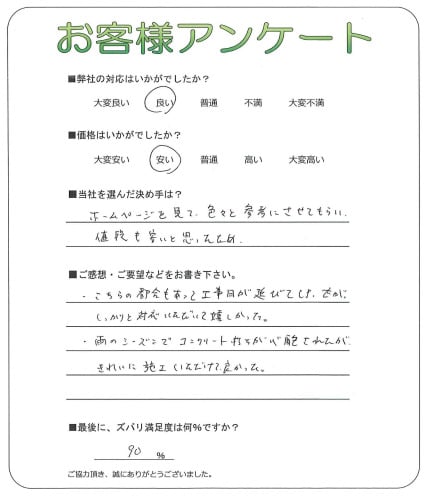 お客様アンケート
■弊社の対応はいかがでしたか？
大変良い 良い 普通 不満 大変不満
■価格はいかがでしたか？
大変安い 安い 普通 高い 大変高い
■当社を選んだ決め手は？
ホームページを見て、色々と参考にさせてもらい、
値段も安いと思ったため
■ご感想・ご要望などをお書き下さい。
・こちらの都合もあって工事日が延びてしまったが、
しっかりと対応いただいて嬉しかった。
・雨のシーズンでコンクリート打ちが心配されたが
きれいに施工いただけて良かった。
■最後に、ズバリ満足度は何％ですか？
90 ％
ご協力頂き、誠にありがとうございました。